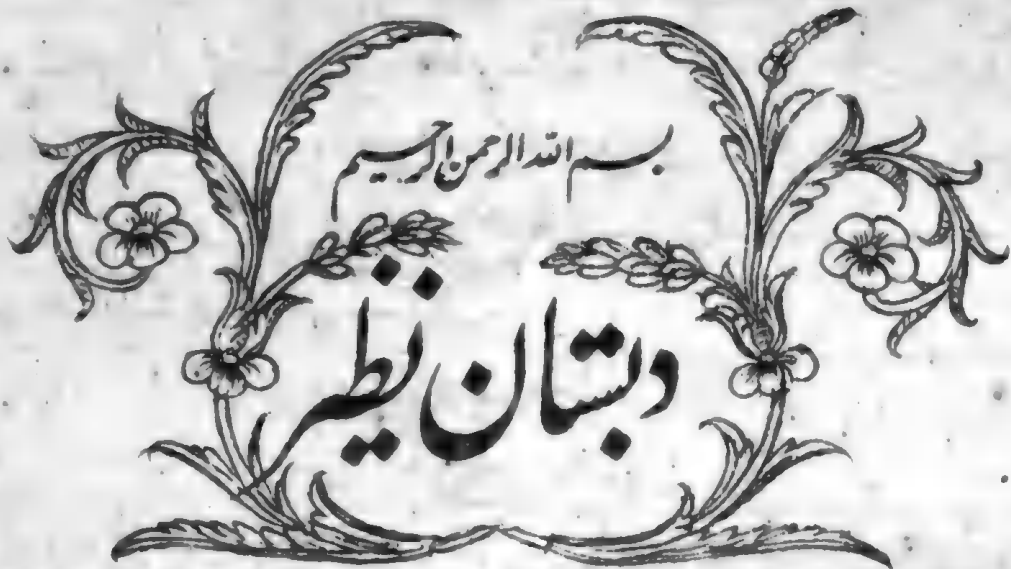 بسم الله الرحمن الرحيم
دبستان نظیر